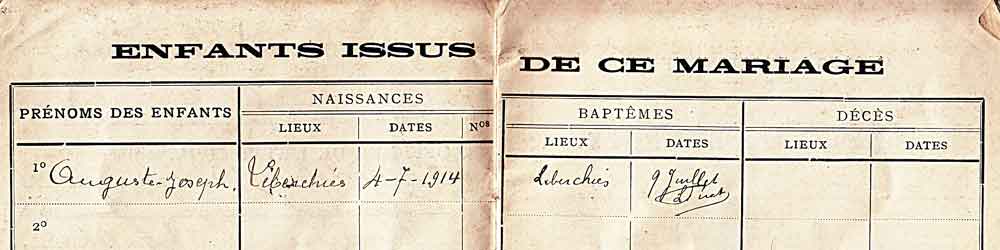 ENFANTS ISSUS DE CE MARIAGE
PRÉNOMS DES ENFANTS NAISSANCES BAPTÊMES DÉCÈS
LIEUX DATES Nos LIEUX DATES LIEUX DATES
1º Auguste-Joseph. Liberchies 4-7-1914 Liberchies 9 Juillet
2º